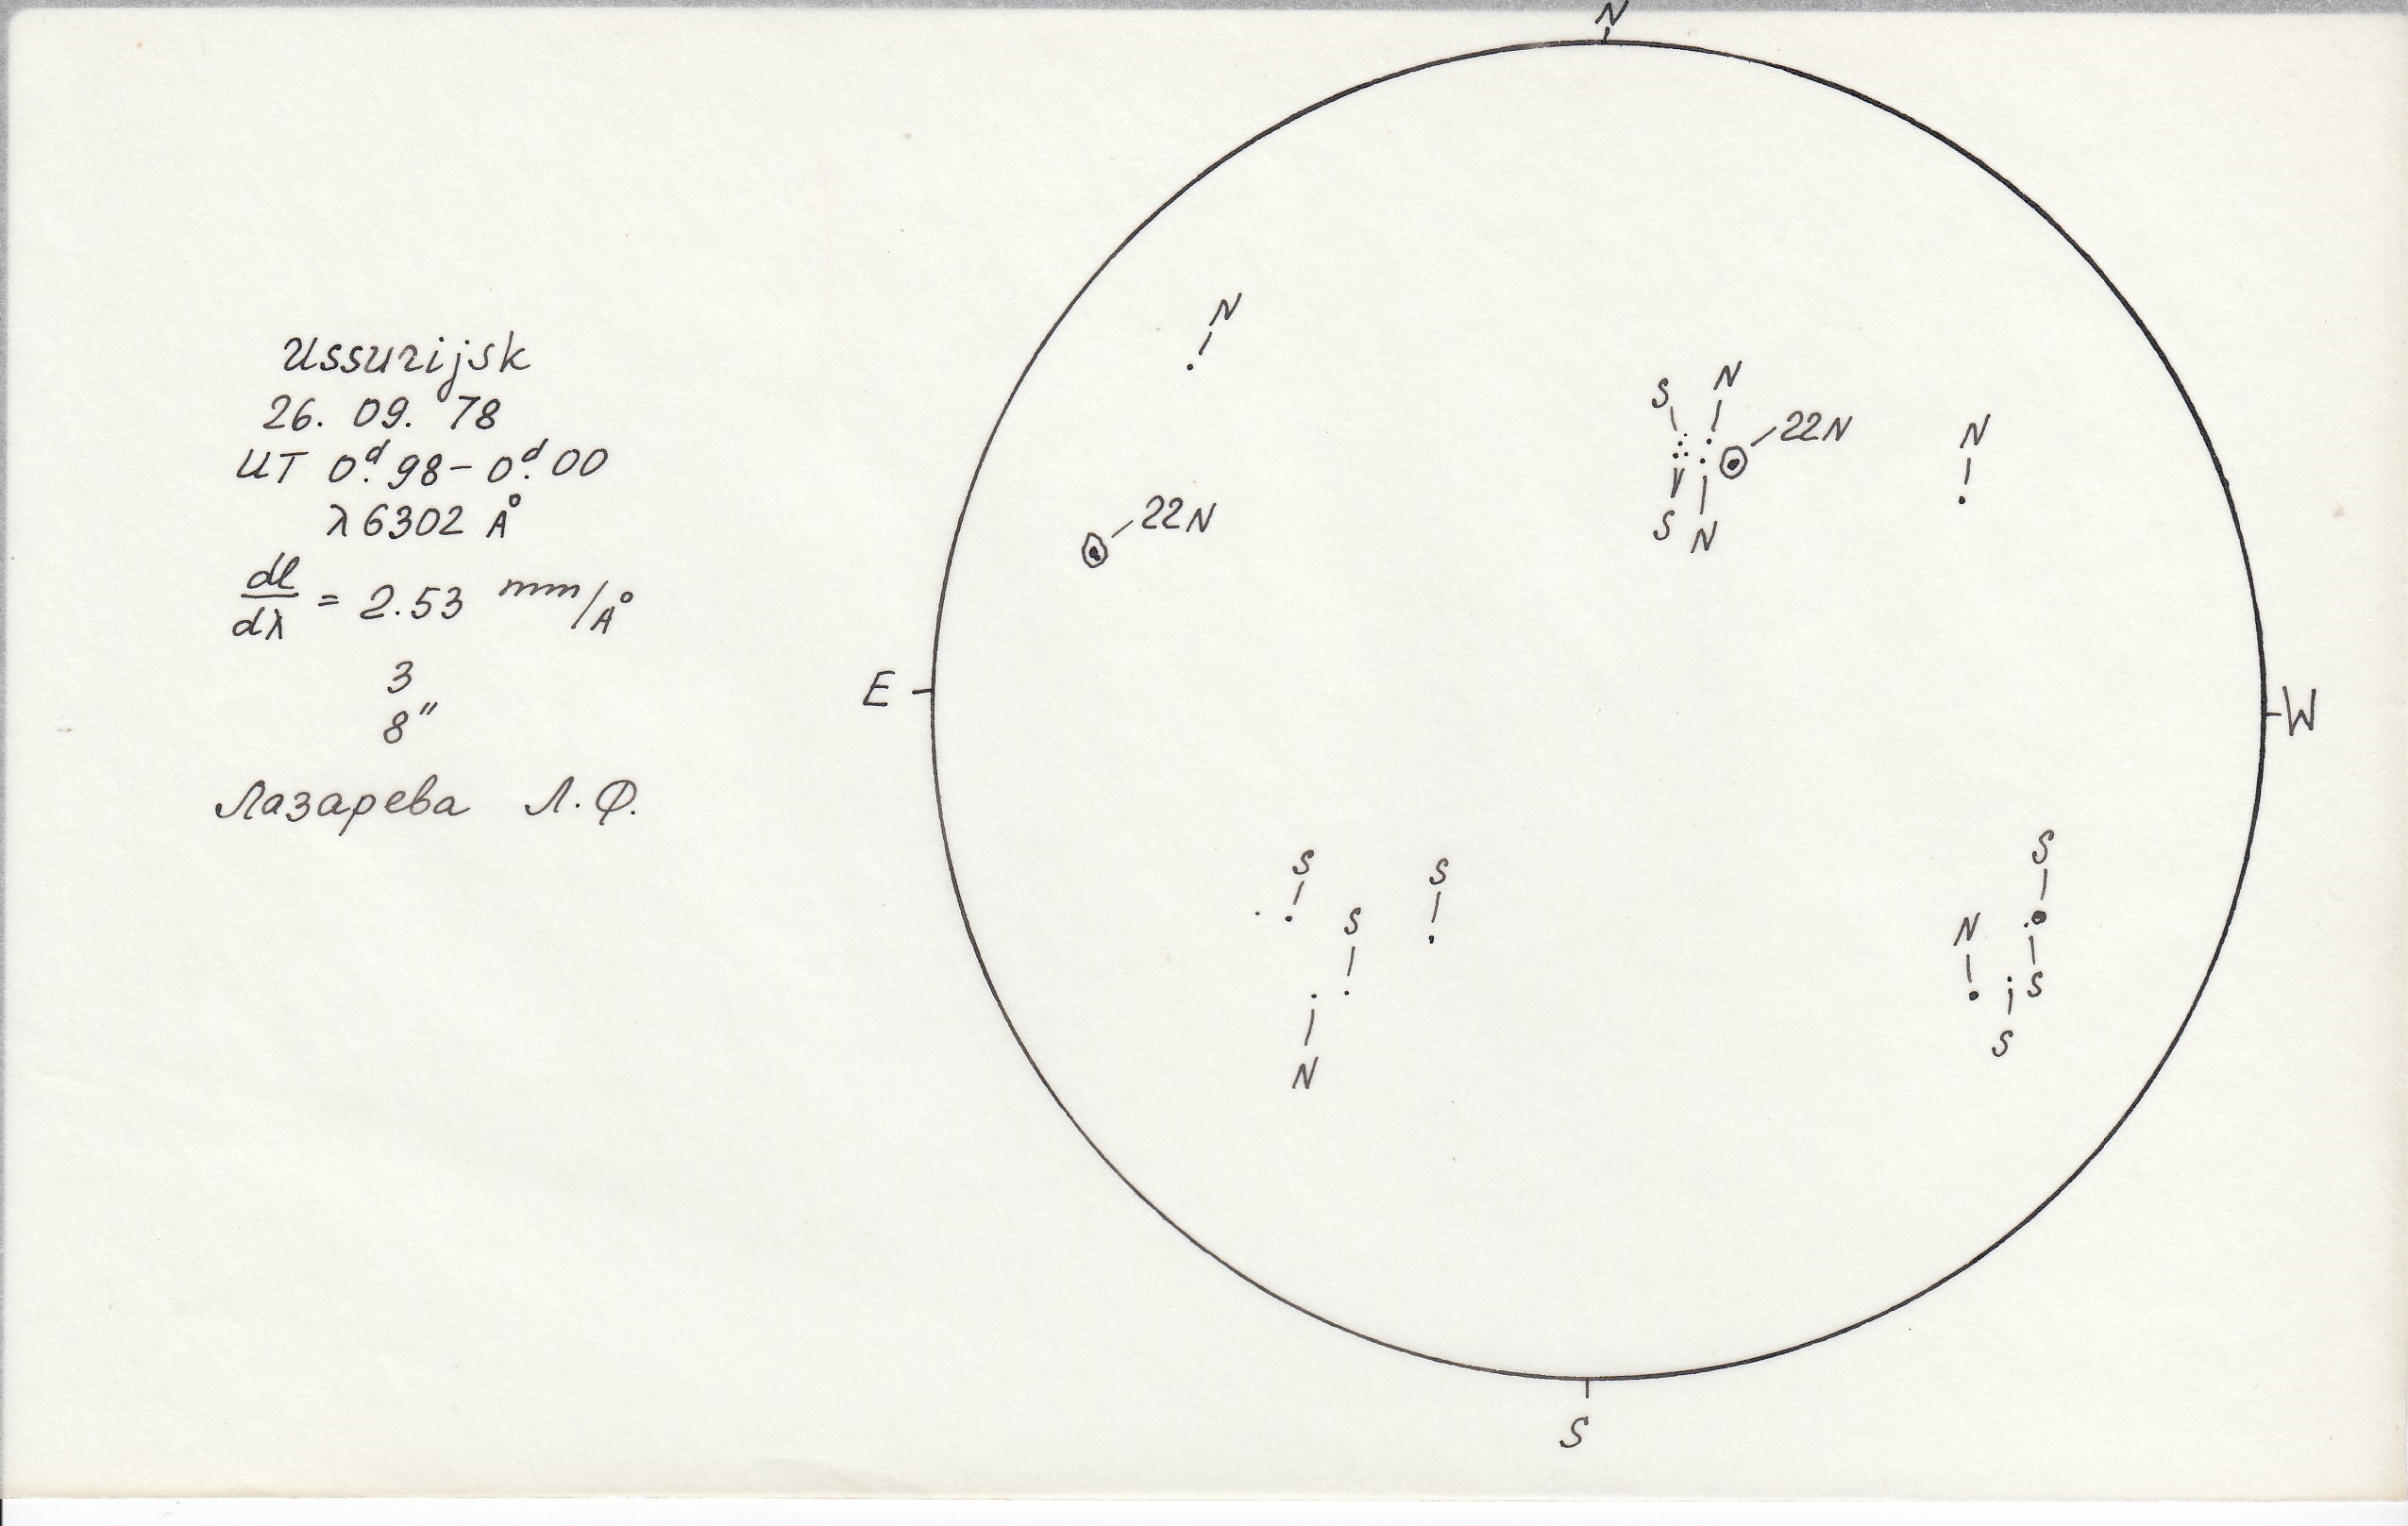 Ussurijsk
26. 09. 78
UT 0ᵈ.98 – 0ᵈ.00
λ 6302 Å
dl/dλ = 2.53 mm/Å
3
8"
Лазарева Л.Ф.
N
N
S N
22N
N
22N
S N
E
W
S
S
S
S
N
S
S
N
S